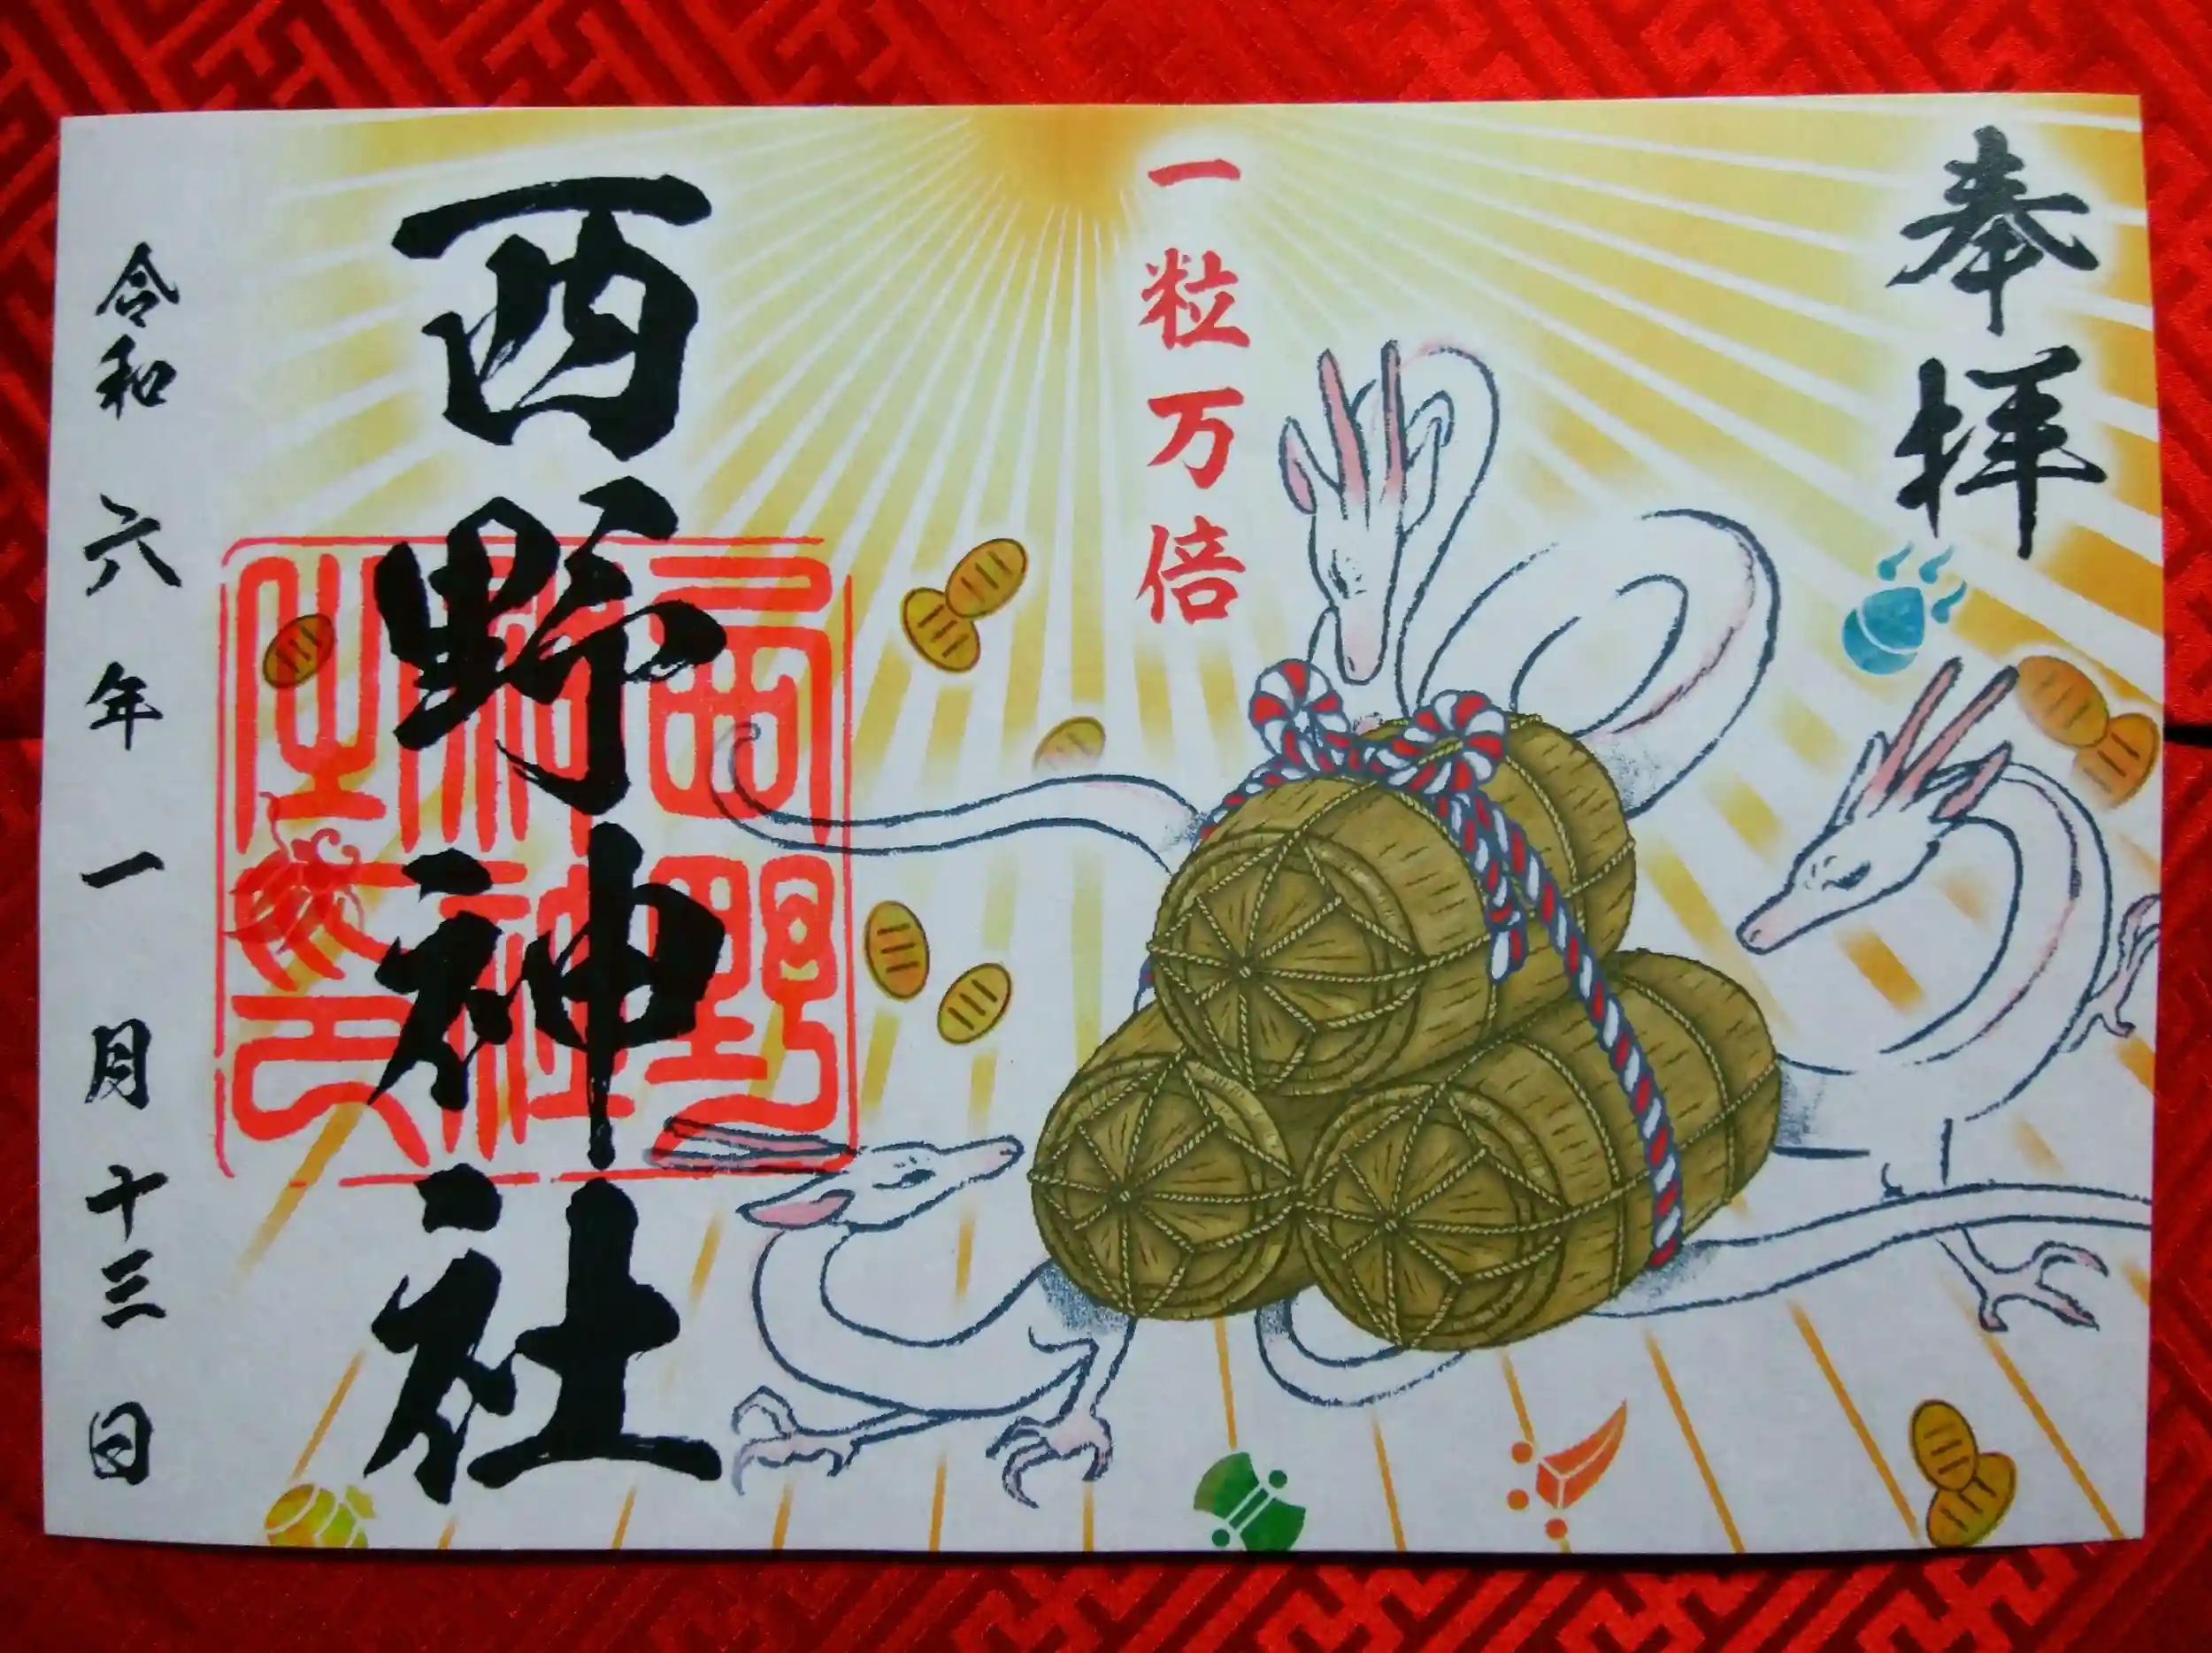 奉拝
一粒万倍
西野神社
西野神社之印
令和六年一月十三日